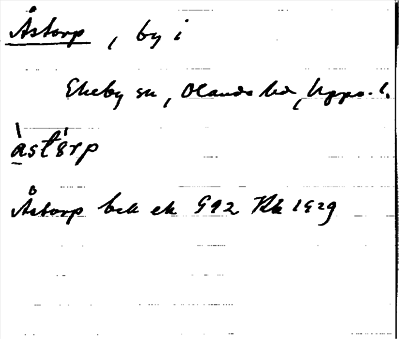 Åstorp, by i
Ekeby sn, Olands hd, Upps. l.
àstórp
Åstorp bek ek 992 Rk 1929